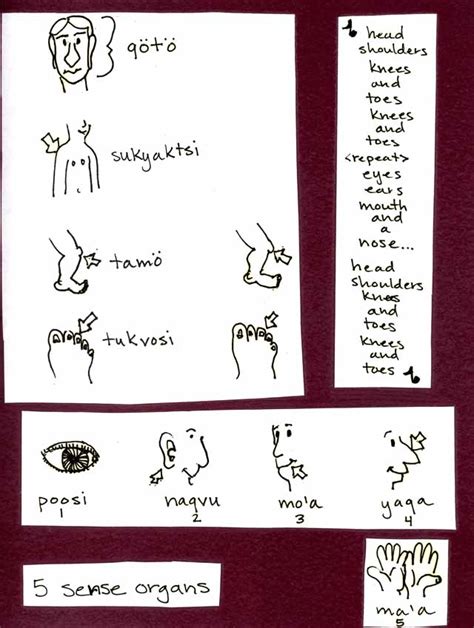 qötö
sukyaktsi
tamö
tukvosi
head
shoulders
knees
and
toes
knees
and
toes
<repeat>
eyes
ears
mouth
and
a
nose...
head
shoulders
knees
and
toes
knees
and
toes
poosi
1
naqvu
2
mo'a
3
yaqa
4
5 sense organs
ma'a
5